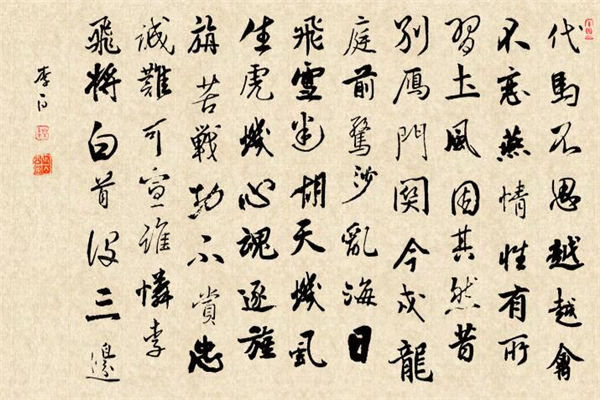 代馬不思越越禽
不恋燕情性有所
習土風固其然昔
别鴈門関今戍龍
庭前驚沙亂海日
飛雪迷胡天蟣虱
生虎心魂逐旌
旃苦戰功不賞忠
誠難可宣誰憐李
飛將白首没三邊
李白